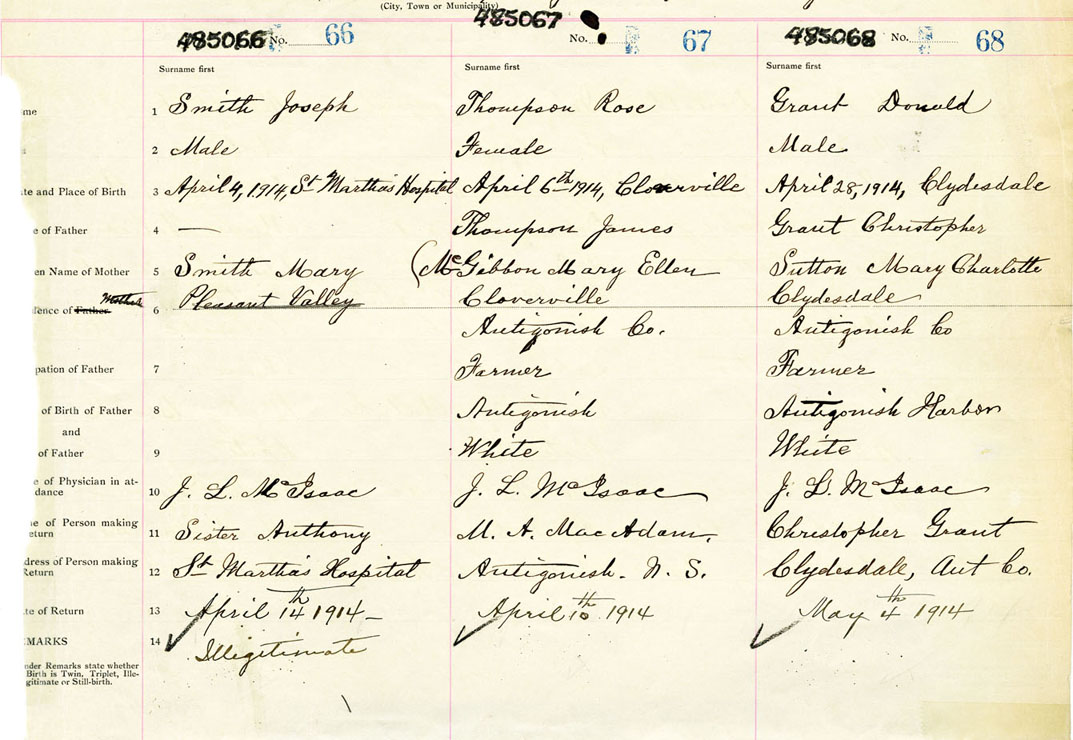 (City, Town or Municipality)
485066 No. 66
485067 No. 67
485068 No. 68
Surname first
Surname first
Surname first
me 1 Smith Joseph
Thompson Rose
Grant Donald
2 Male
Female
Male
te and Place of Birth 3 April 4, 1914, St Martha's Hospital
April 6th 1914, Cloverville
April 28, 1914, Clydesdale
e of Father 4 —
Thompson James
Grant Christopher
en Name of Mother 5 Smith Mary
(McGibbon Mary Ellen
Sutton Mary Charlotte
Mother
dence of Father 6 Pleasant Valley
Cloverville
Clydesdale
Antigonish Co.
Antigonish Co
pation of Father 7
Farmer
Farmer
of Birth of Father 8
Antigonish
Antigonish Harbor
and
of Father 9
White
White
e of Physician in at-
dance 10 J. L. McIsaac
J. L. McIsaac
J. L. McIsaac
me of Person making
eturn 11 Sister Anthony
M. A. MacAdam.
Christopher Grant
dress of Person making
Return 12 St Martha's Hospital
Antigonish. N. S.
Clydesdale, Ant Co.
te of Return 13 April 14th 1914 —
April 10th 1914
May 4th 1914
EMARKS 14 Illigitimate
nder Remarks state whether
Birth is Twin, Triplet, Ille-
gitimate or Still-birth.